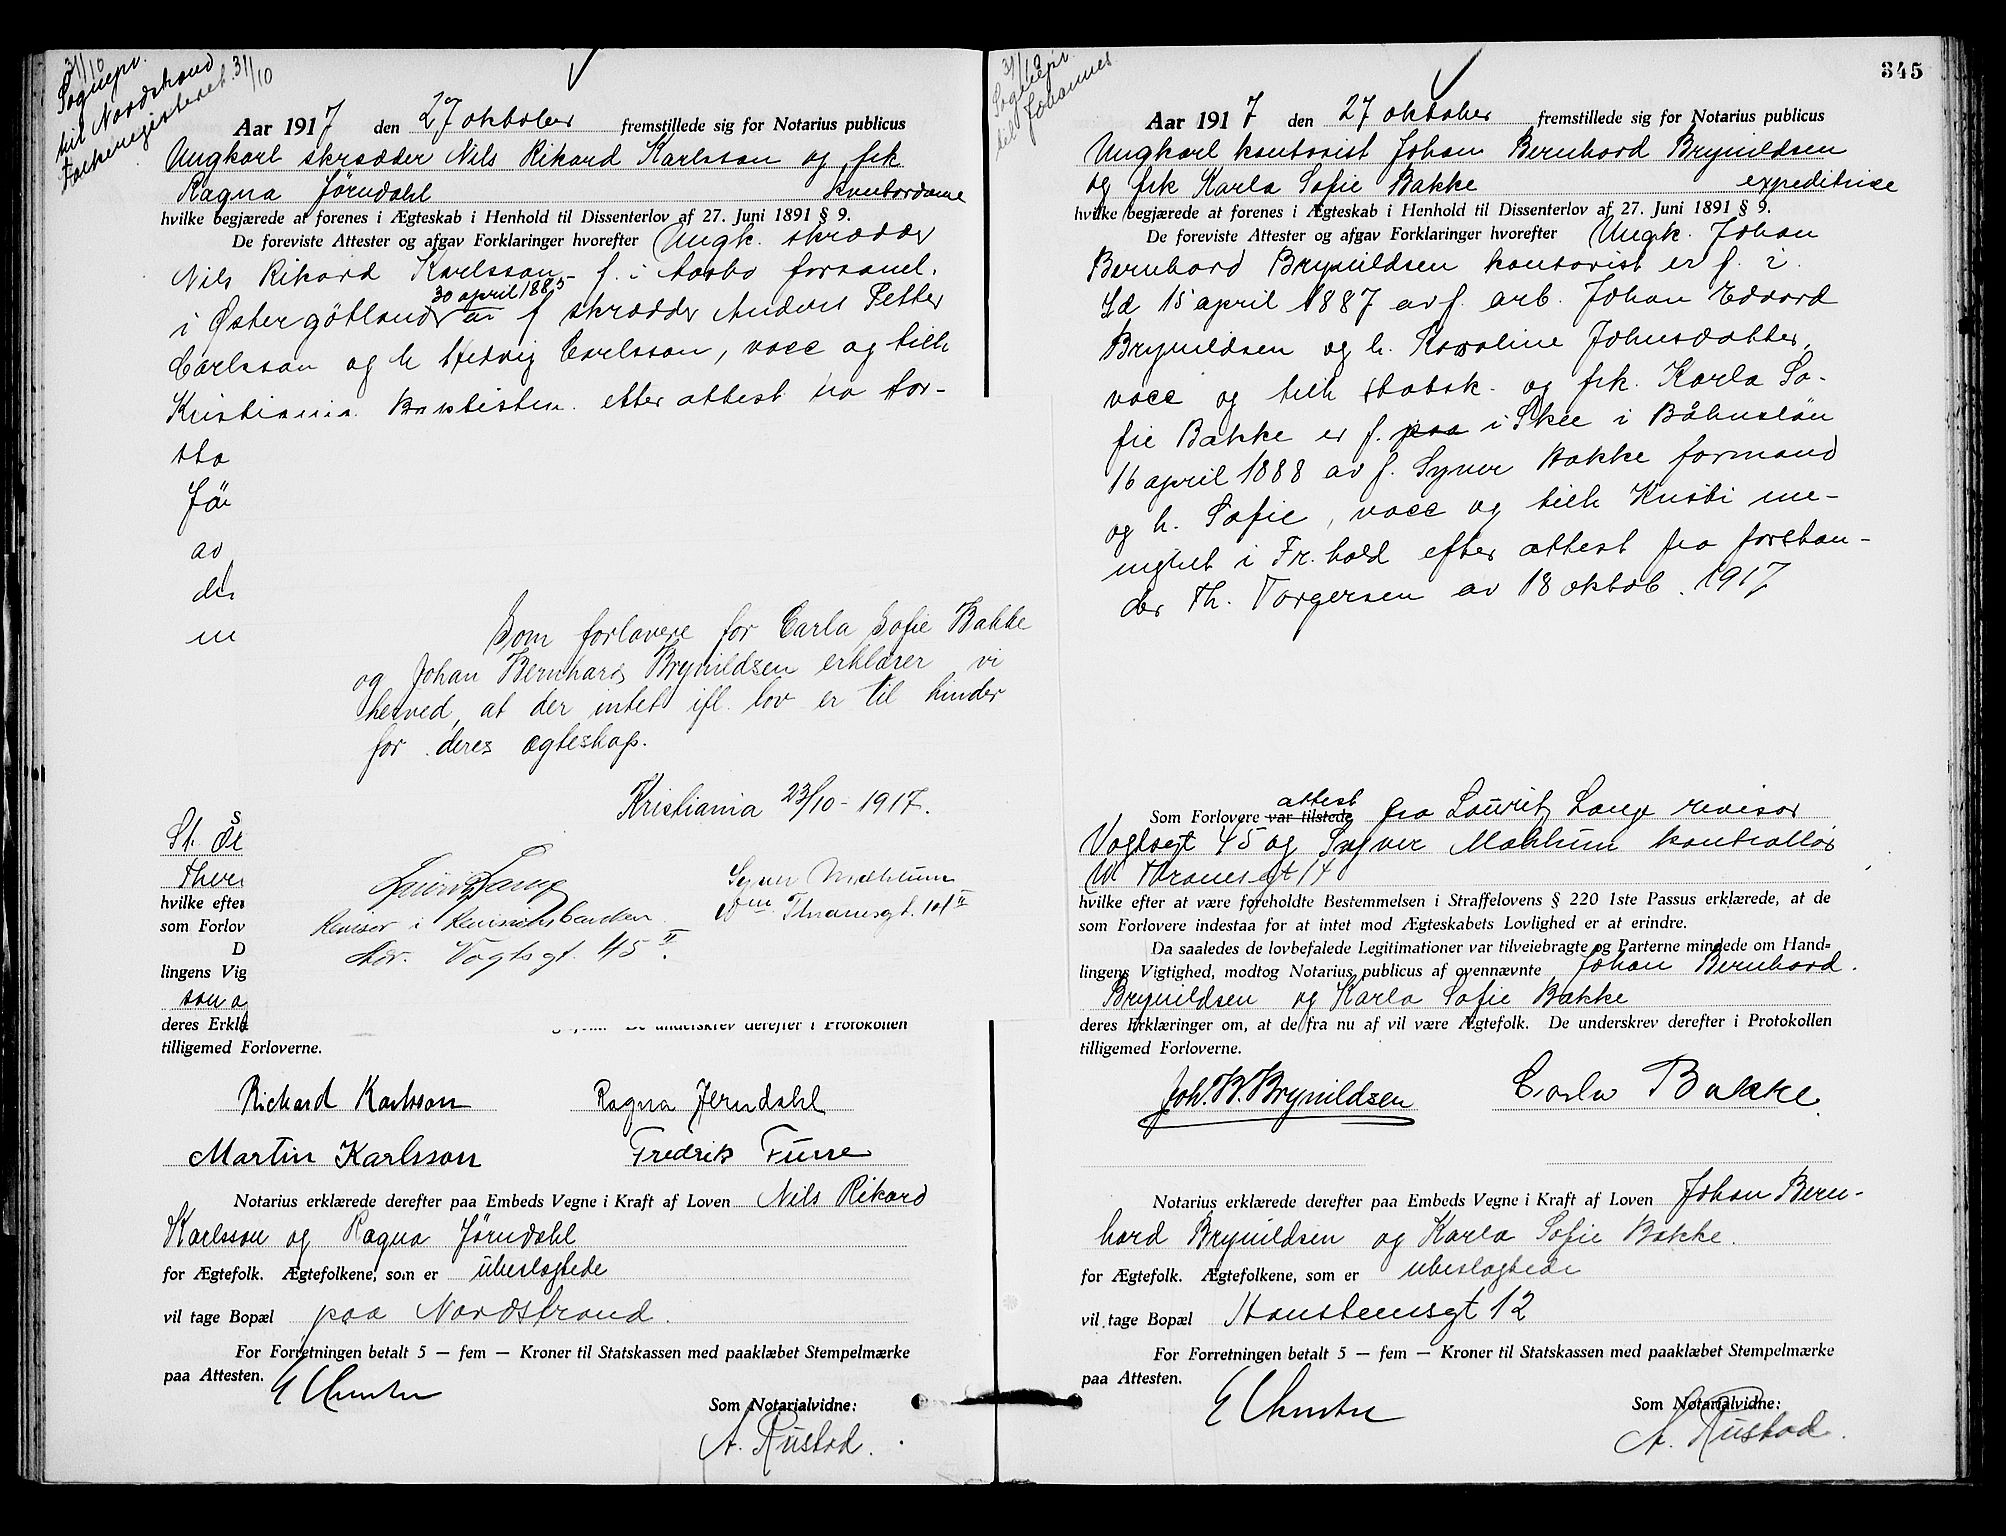 31/10
Sognepr.
til Nordstrand
Folkeregisteret 31/10
Aar 1917 den 27 oktober fremstillede sig for Notarius publicus
Ungkarl skrædder Nils Rikard Karlsson og frk
Ragna Jörndahl kontordame
hvilke begjærede at forenes i Ægteskab i Henhold til Dissenterlov af 27. Juni 1891 § 9.
De foreviste Attester og afgav Forklaringer hvorefter Ungk. skrædder
Nils Rikard Karlsson f. i Aasbo forsaml.
30 april 1885
i Østergötland av f skrædder Anders Petter
Carlsson og h Hedvig Carlsson, vacc og tilh
Kristiania Baptistm. efter attest fra for-
sta
Jör
av
der
m
Som forlovere for Carla Sofie Bakke
og Johan Bernhard Brynildsen erklærer vi
herved, at der intet ifl. lov er til hinder
for deres ægteskap.
Kristiania 23/10 - 1917.
S
St. Ol
Thver
hvilke efter
som Forlov
D
lingens Vig
son o
deres Erklæ
Lauritz Lange
Revisor i
Adr. Vogtsgt. 45 II.
Syver Mæhlum
Wm Thranesgt. 14 II
De underskrev derefter i Protokollen
tilligemed Forloverne.
Richard Karlsson Ragna Jerndahl
Martin Karlsson Fredrik Furre
Notarius erklærede derefter paa Embeds Vegne i Kraft af Loven Nils Rikard
Karlsson og Ragna Jörndahl
for Ægtefolk. Ægtefolkene, som er ubeslegtede
vil tage Bopæl paa Nordstrand.
For Forretningen betalt 5 — fem — Kroner til Statskassen med paaklæbet Stempelmærke
paa Attesten.
Som Notarialvidne:
A. Rustad.
345
31/10
Sognepr
til Johannes
Aar 1917 den 27 oktober fremstillede sig for Notarius publicus
Ungkarl kontorist Johan Bernhard Brynildsen
og frk Karla Sofie Bakke expeditrise
hvilke begjærede at forenes i Ægteskab i Henhold til Dissenterlov af 27. Juni 1891 § 9.
De foreviste Attester og afgav Forklaringer hvorefter Ungk. Johan
Bernhard Brynildsen kontorist er f. i
Id 15 april 1887 av f. arb. Johan Edvard
Brynildsen og h. Karoline Johnsdatter,
vacc og tilh statsk. og frk. Karla So-
fie Bakke er f. paa i Skee i Båhuslän
16 april 1888 av f. Syver Bakke formand
og h. Sofie, vacc og tilh Kristi me-
nighet i Fr.hald efter attest fra forstan-
der Th. Torgersen av 18 oktob. 1917
attest
Som Forlovere var tilstede fra Lauritz Lange revisor
Vogtsgt 45 og Syver Mæhlum kontrollør
W Thranesgt 14
hvilke efter at være foreholdte Bestemmelsen i Straffelovens § 220 1ste Passus erklærede, at de
som Forlovere indestaa for at intet mod Ægteskabets Lovlighed er at erindre.
Da saaledes de lovbefalede Legitimationer var tilveiebragte og Parterne mindede om Hand-
lingens Vigtighed, modtog Notarius publicus af ovennævnte Johan Bernhard
Brynildsen og Karla Sofie Bakke
deres Erklæringer om, at de fra nu af vil være Ægtefolk. De underskrev derefter i Protokollen
tilligemed Forloverne.
Joh. B. Brynildsen Carla Bakke.
Notarius erklærede derefter paa Embeds Vegne i Kraft af Loven Johan Bern-
hard Brynildsen og Karla Sofie Bakke.
for Ægtefolk. Ægtefolkene, som er ubeslegtede
vil tage Bopæl Hansteensgt 12
For Forretningen betalt 5 — fem — Kroner til Statskassen med paaklæbet Stempelmærke
paa Attesten.
Som Notarialvidne:
A. Rustad.